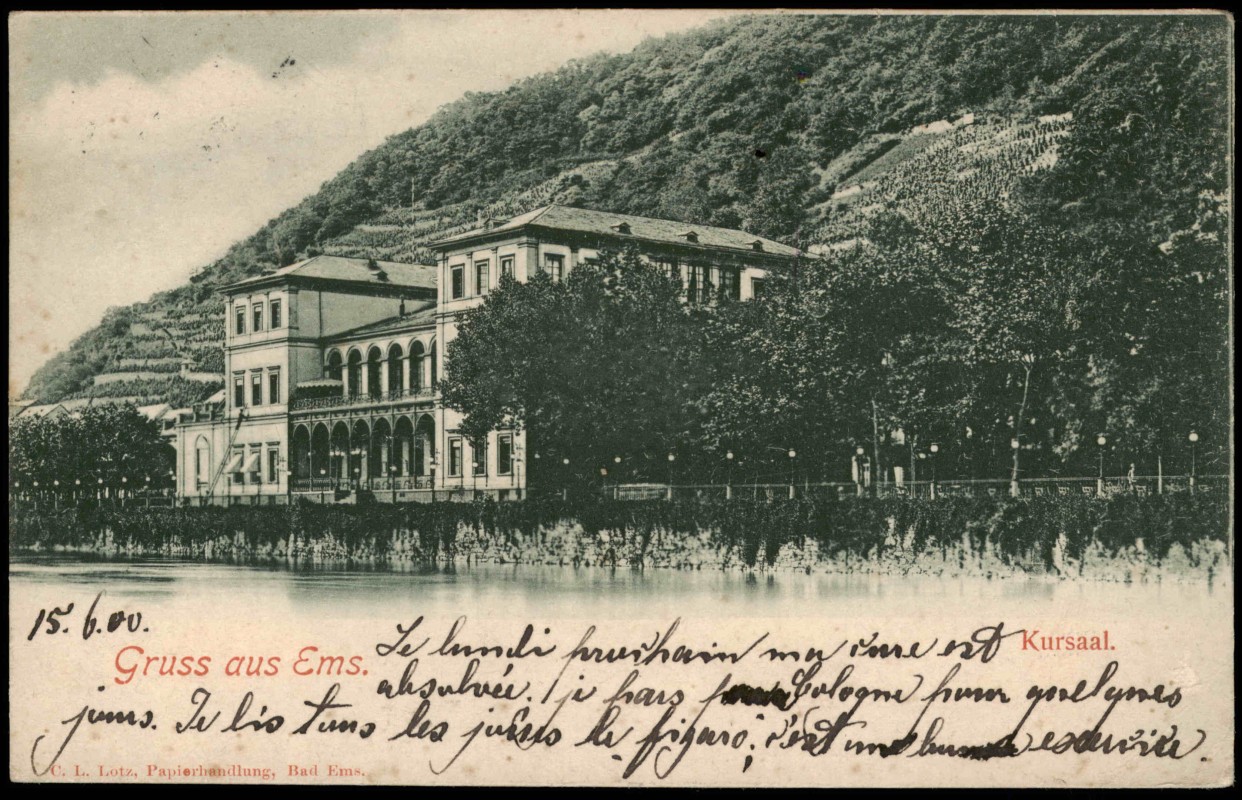 15. 6. 00.
Gruss aus Ems.
Kursaal.
Le lundi prochain ma cure est
absolvée. je pars pour Cologne pour quelques
jours. Je lis tous les jours le figaro; c'est une bonne exercice.
C. L. Lotz, Papierhandlung, Bad Ems.